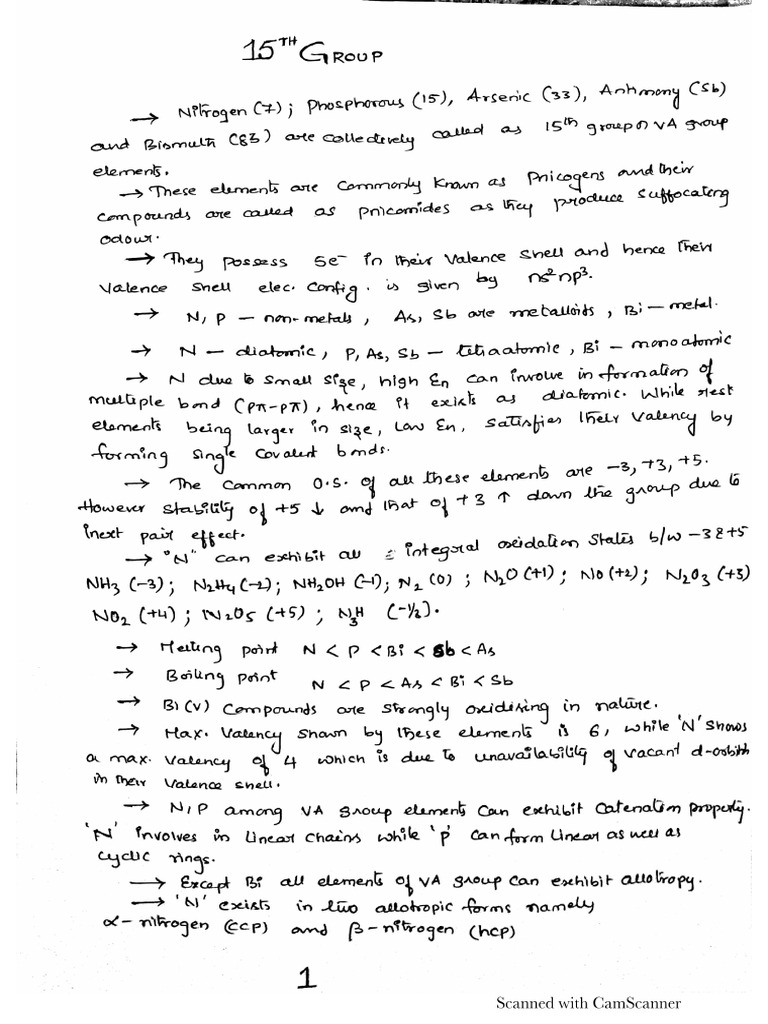 15TH GROUP
→ Nitrogen (7); Phosphorous (15), Arsenic (33), Antimony (Sb)
and Bismuth (83) are collectively called as 15th group or VA group
elements.
→ These elements are commonly known as Pnicogens and their
compounds are called as pnicomides as they produce suffocating
odour.
→ They possess 5e⁻ in their valence shell and hence their
valence shell elec. config. is given by ns²np³.
→ N, P – non-metals, As, Sb are metalloids, Bi – metal.
→ N – diatomic, P, As, Sb – tetraatomic, Bi – monoatomic
→ N due to small size, high En can involve in formation of
multiple bond (pπ-pπ), hence it exists as diatomic. While rest
elements being larger in size, Low En, satisfies their valency by
forming single covalent bonds.
→ The common O.S. of all these elements are -3, +3, +5.
However stability of +5 ↓ and that of +3 ↑ down the group due to
inext pair effect.
→ "N" can exhibit all integral oxidation states b/w -3 & +5
NH₃ (-3); N₂H₄ (-2); NH₂OH (-1); N₂ (0); N₂O (+1); NO (+2); N₂O₃ (+3)
NO₂ (+4); N₂O₅ (+5); N₃H (-⅓).
→ Melting point N < P < Bi < Sb < As
→ Boiling point N < P < As < Bi < Sb
→ Bi (V) compounds are strongly oxidising in nature.
→ Max. valency shown by these elements is 6, while 'N' shows
a max. valency of 4 which is due to unavailability of vacant d-orbith
in their valence shell.
→ N, P among VA group elements can exhibit catenation property.
'N' involves in linear chains while 'p' can form linear as well as
cyclic rings.
→ Except Bi all elements of VA group can exhibit allotropy.
→ 'N' exists in two allotropic forms namely
α-nitrogen (CCP) and β-nitrogen (hcp)
1
Scanned with CamScanner